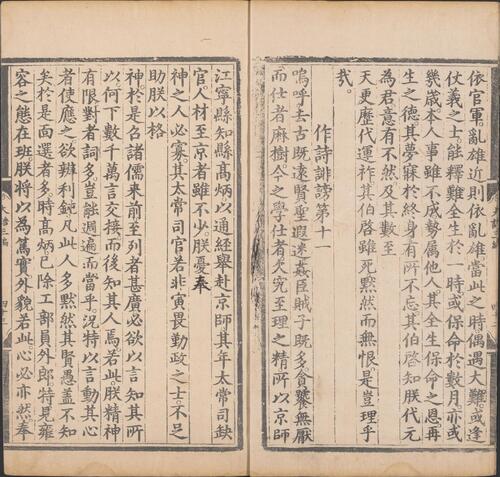 依官軍亂雄近則依亂雄當此之時偶遇大難或逢
仗義之士能釋難全生於一時或保命於數月亦或
幾歲本人事雖不成勢屬他人其全生保命之恩再
生之德其夢寐於終身有所不忘其伯啓知朕代元
為君意有不然及其數至
天更歷代運祚其伯啓雖死黙然而無恨是豈理乎
哉
作詩誹謗第十一
嗚呼去古既遠賢聖遐迷姦臣賊子既多貪饕無厭
而仕者麻樹今之學仕者失究至理之精所以京師
江寧縣知縣高炳以通經舉赴京師其年太常司缺
官人材至京者雖不少朕憂奉
神之人必寡其太常司官若非寅畏勤政之士不足
助朕以格
神於是召諸儒來前至列者甚廣必欲以言知其所
以何下數千萬言交接而後知其人焉若此朕精神
有限對者詞多豈能週遍而當乎況特以言動其心
者使應之欲辨利鈍凡此人多黙然其賢愚盖不知
矣於是面選者多時高炳已除工部員外郎特見雍
容之態在班朕將以為篤實外貌若此心必亦然奉